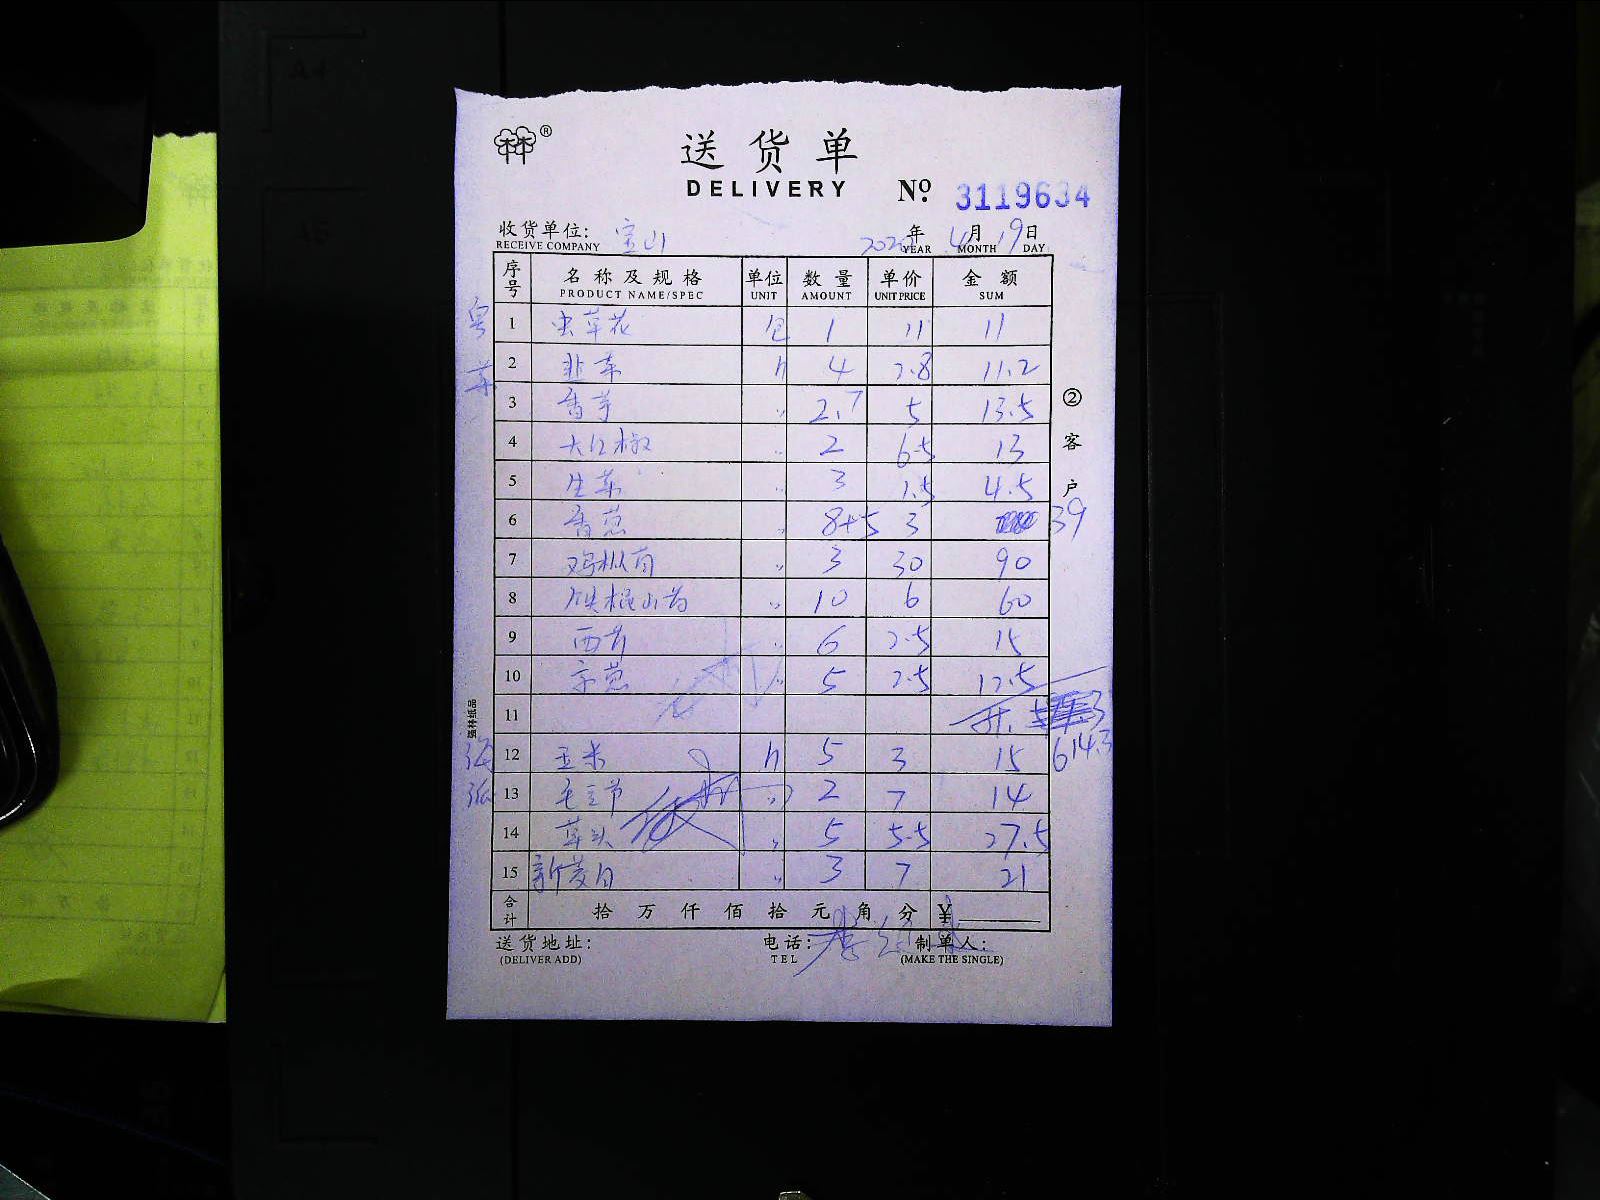 ®
送货单
DELIVERY № 3119634
收货单位: 宝山 年 4月 19日
RECEIVE COMPANY YEAR MONTH DAY
序号 名称及规格 单位 数量 单价 金额
PRODUCT NAME/SPEC UNIT AMOUNT UNIT PRICE SUM
粤菜
1 虫草花 包 1 11 11
2 韭菜 斤 4 2.8 11.2
3 香芋 〃 2.7 5 13.5
4 大红椒 〃 2 6.5 13
5 生菜 〃 3 1.5 4.5
6 香葱 〃 8+5 3 39
7 鸡枞菌 〃 3 30 90
8 铁棍山药 〃 10 6 60
9 西芹 〃 6 2.5 15
10 京葱 〃 5 2.5 12.5
11
614.3
12 玉米 斤 5 3 15
13 毛豆节 〃 2 7 14
14 草头 〃 5 5.5 27.5
15 新茭白 〃 3 7 21
合计 拾 万 仟 佰 拾 元 角 分 ¥
送货地址: 电话: 制单人:
(DELIVER ADD) TEL (MAKE THE SINGLE)
②客户
强林纸品